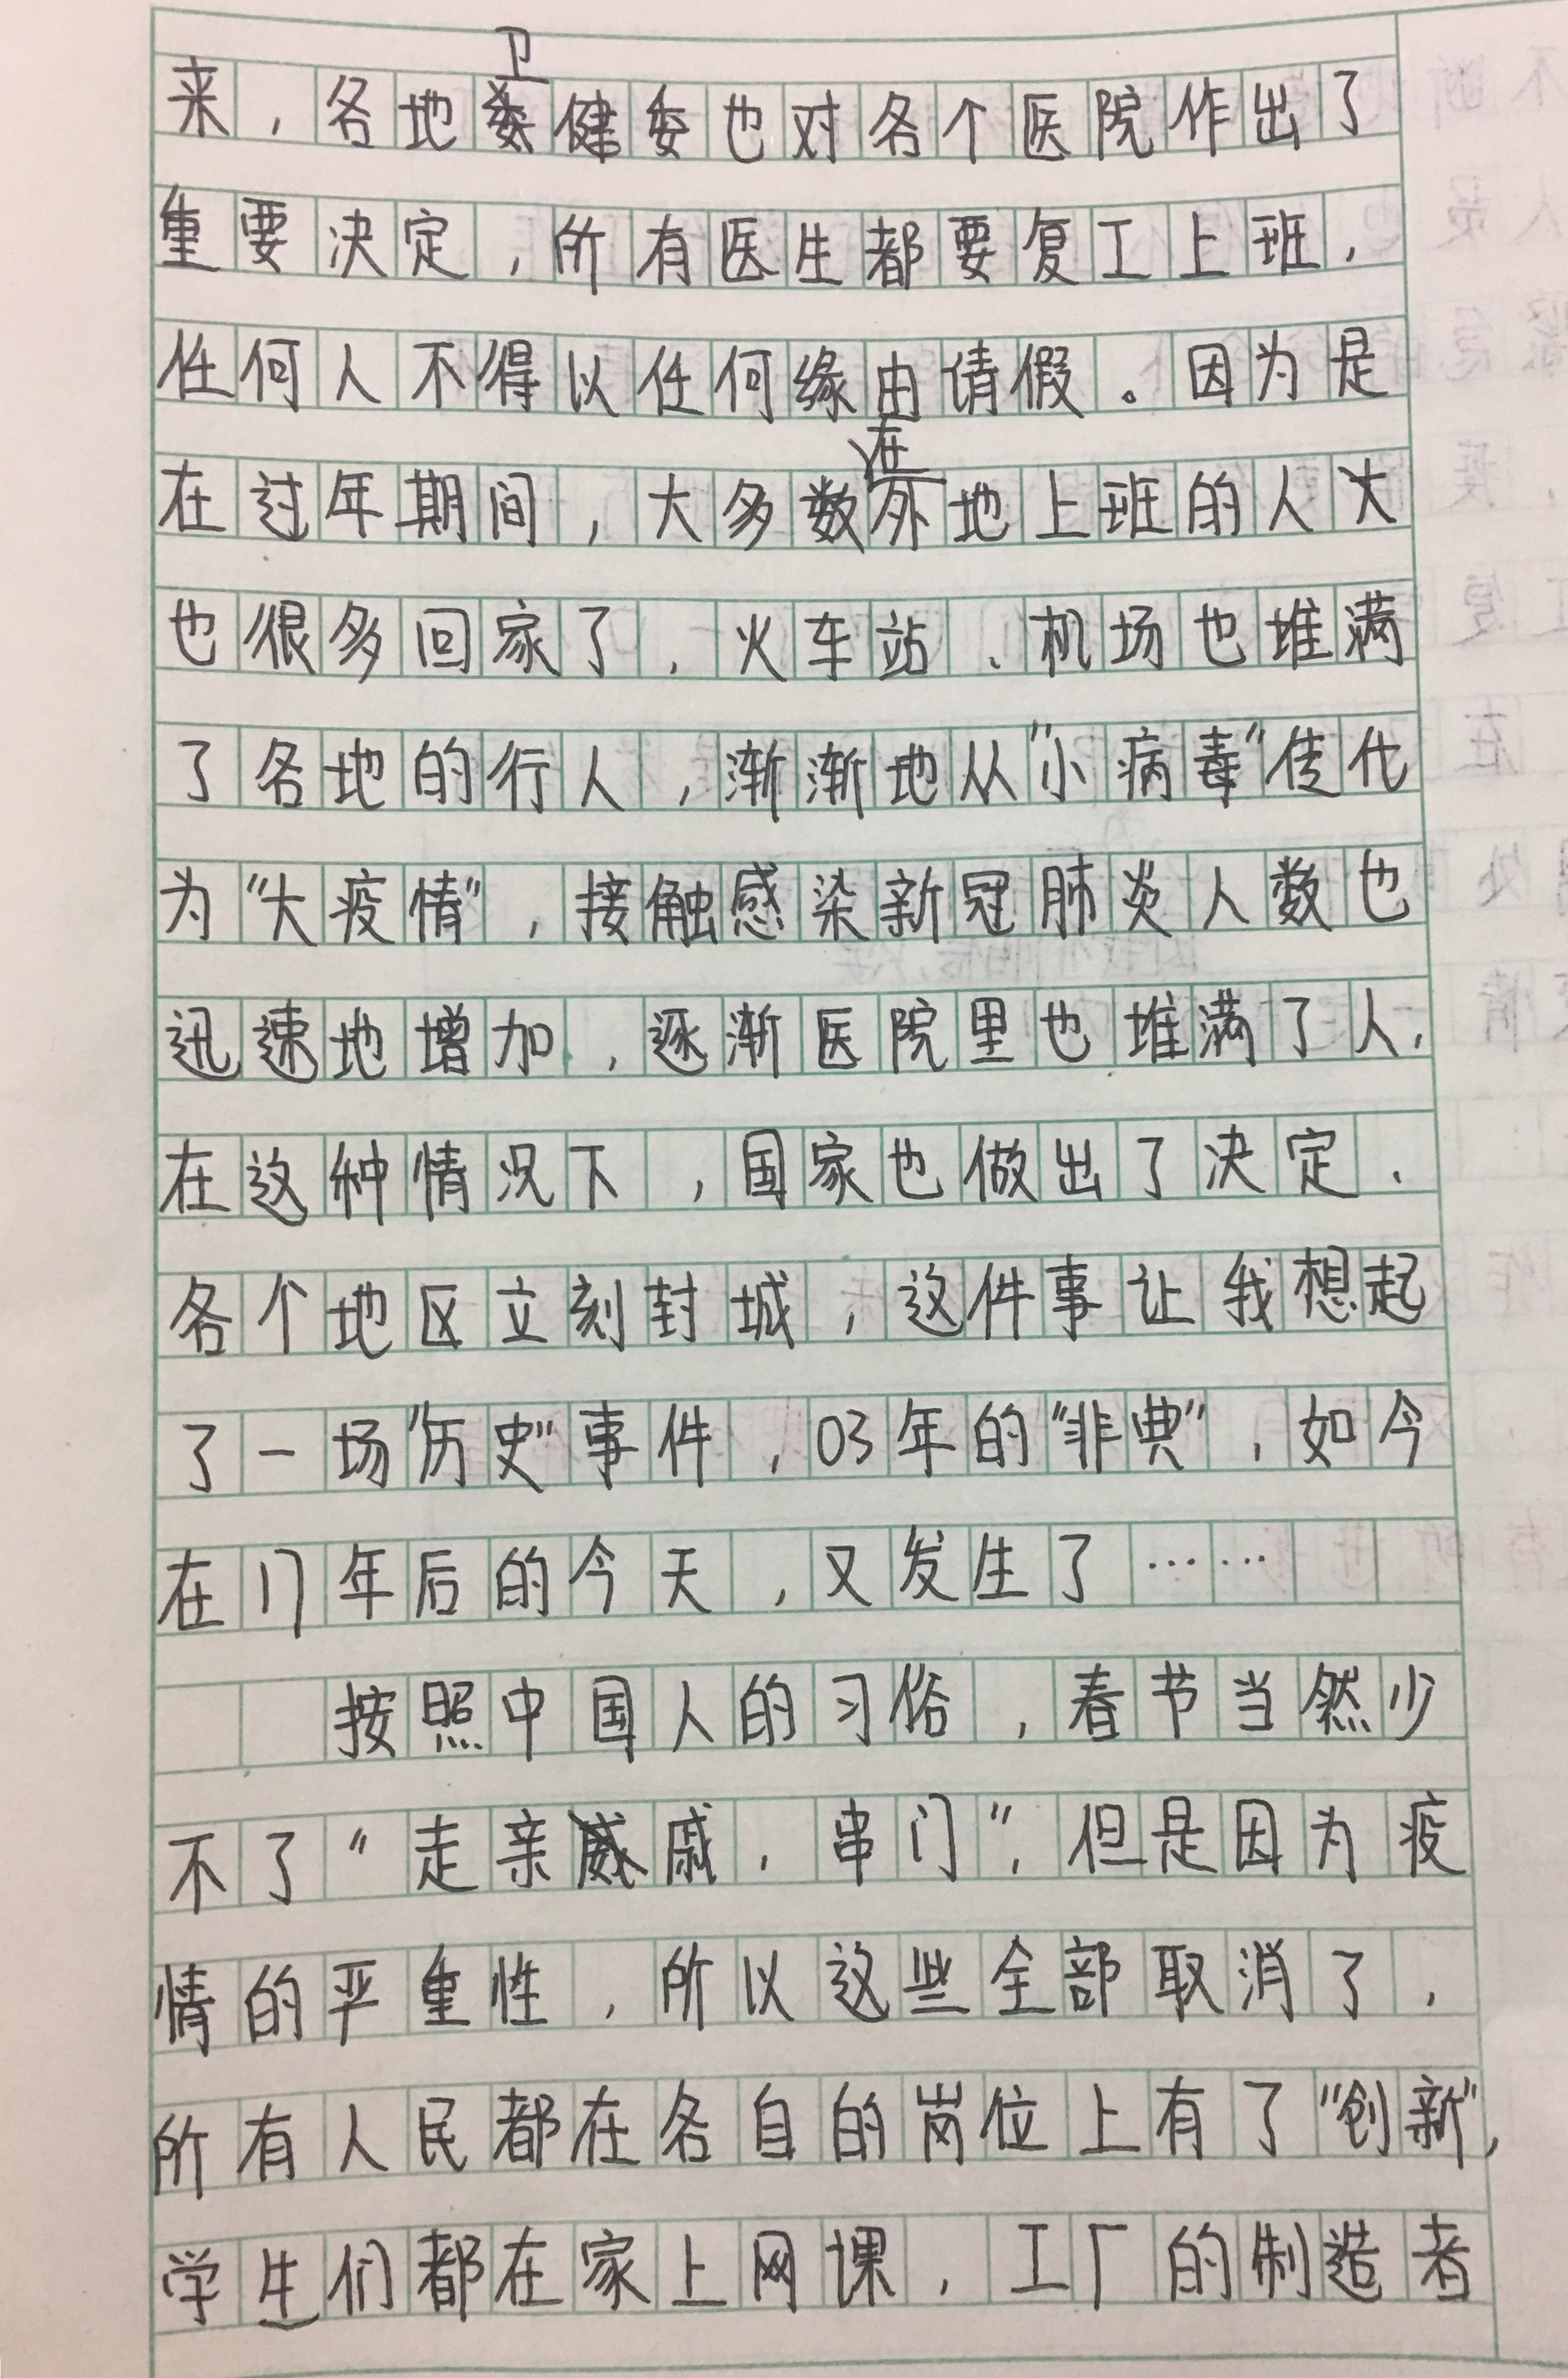 来，各地卫健委也对各个医院作出了
重要决定，所有医生都要复工上班，
任何人不得以任何缘由请假。因为是
在过年期间，大多数在外地上班的人大
也很多回家了，火车站、机场也堆满
了各地的行人，渐渐地从“小病毒”传化
为“大疫情”，接触感染新冠肺炎人数也
迅速地增加，逐渐医院里也堆满了人，
在这种情况下，国家也做出了决定，
各个地区立刻封城，这件事让我想起
了一场“历史”事件，03年的“非典”，如今
在17年后的今天，又发生了……
按照中国人的习俗，春节当然少
不了“走亲戚，串门”，但是因为疫
情的严重性，所以这些全部取消了，
所有人民都在各自的岗位上有了“创新”，
学生们都在家上网课，工厂的制造者